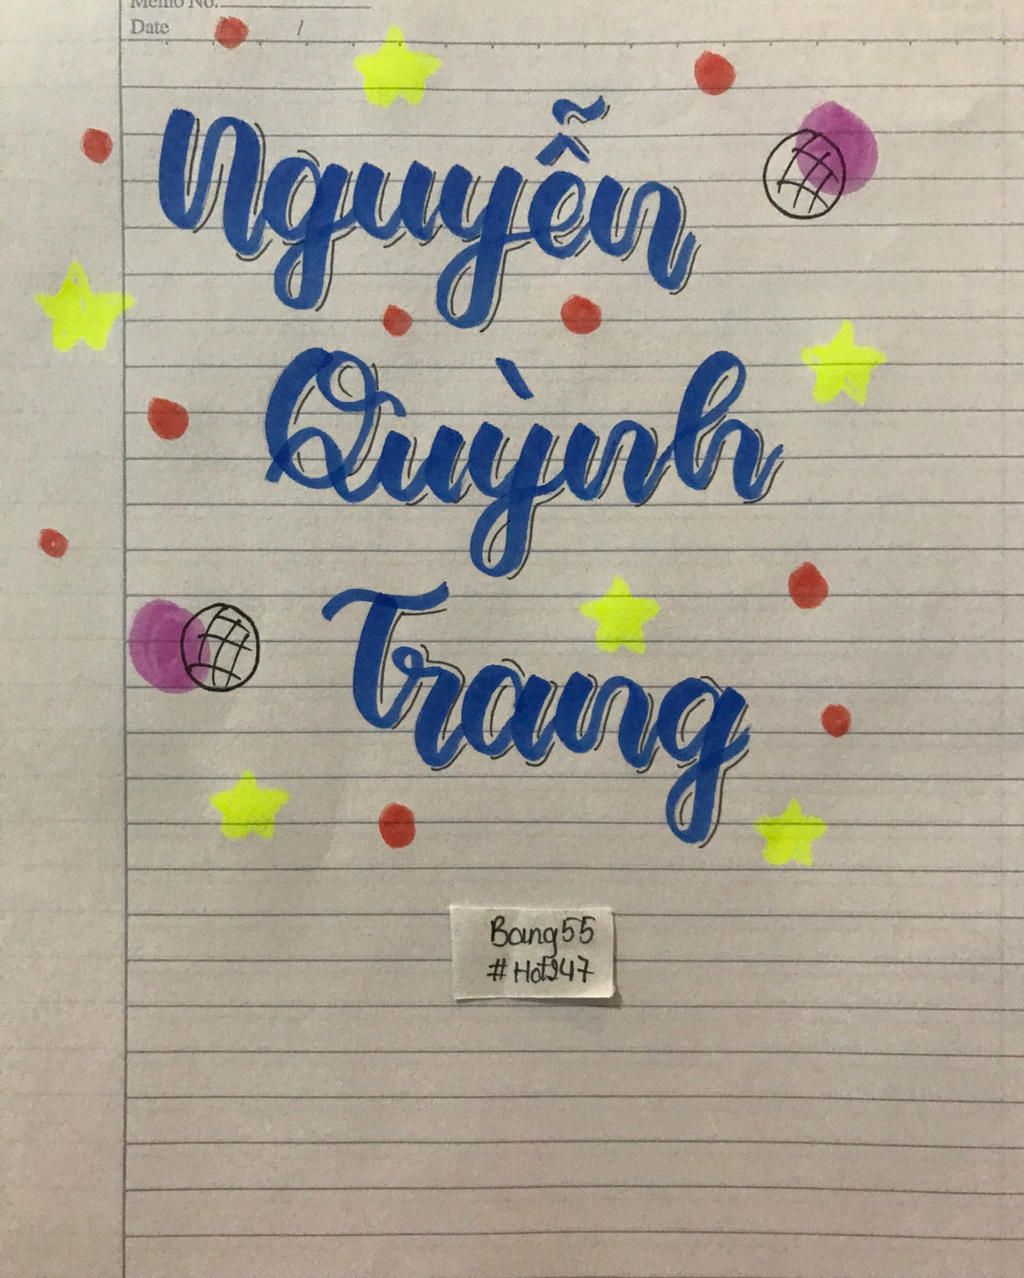 Memo No.
Date /
Nguyễn
Quỳnh
Trang
Bang55
#Hot247